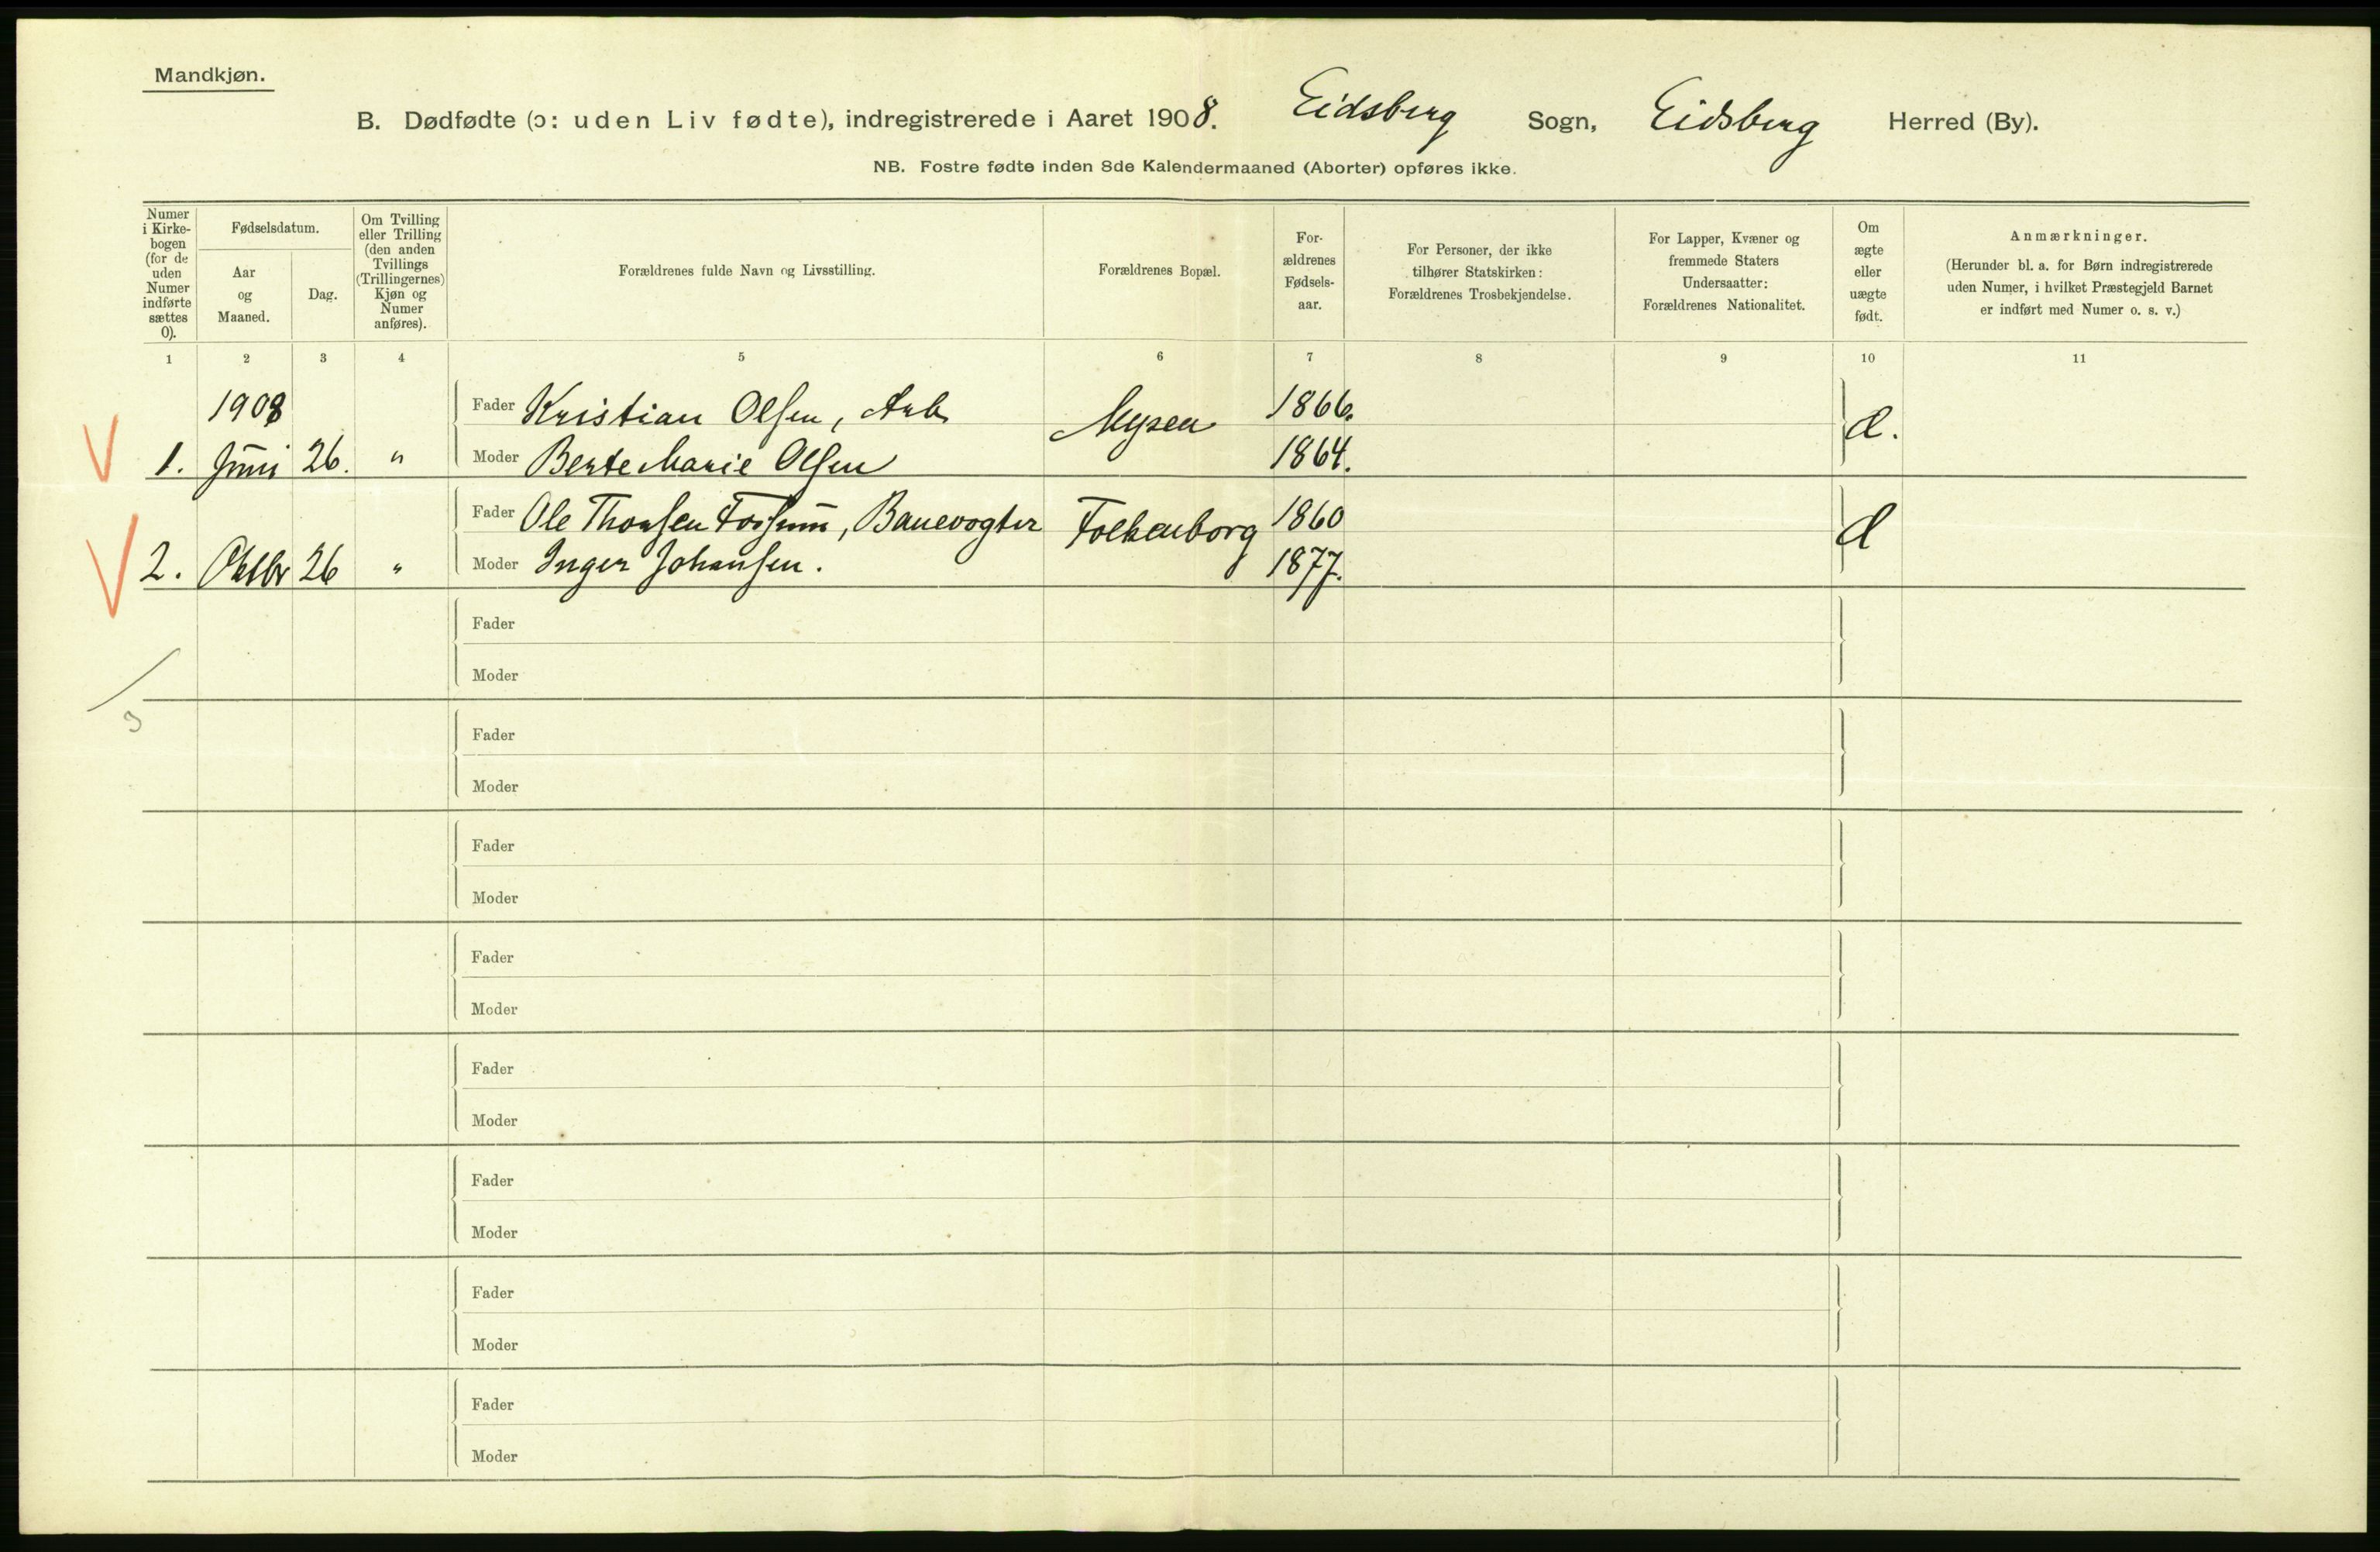 Mandkjøn.
B. Dødfødte (ɔ: uden Liv fødte), indregistrerede i Aaret 1908. Eidsberg Sogn, Eidsberg Herred (By).
NB. Fostre fødte inden 8de Kalendermaaned (Aborter) opføres ikke.
Numer
i Kirke-
bogen
(for de
uden
Numer
indførte
sættes
0).
Fødselsdatum.
Aar
og
Maaned.
Dag.
Om Tvilling
eller Trilling
(den anden
Tvillings
(Trillingernes)
Kjøn og
Numer
anføres).
Forældrenes fulde Navn og Livsstilling.
Forældrenes Bopæl.
For-
ældrenes
Fødsels-
aar.
For Personer, der ikke
tilhører Statskirken:
Forældrenes Trosbekjendelse.
For Lapper, Kvæner og
fremmede Staters
Undersaatter:
Forældrenes Nationalitet.
Om
ægte
eller
uægte
født.
Anmærkninger.
(Herunder bl. a. for Børn indregistrerede
uden Numer, i hvilket Præstegjeld Barnet
er indført med Numer o. s. v.)
1 2 3 4 5 6 7 8 9 10 11
1908 Fader Kristian Olsen, Arb. Mysen 1866.
1. Juni 26. " Moder Berte Marie Olsen 1864.
Fader Ole Thonsen Fossum, Banevogter Folkenborg 1860
2. Oktbr 26 " Moder Inger Johansen. 1877.
Fader
Moder
Fader
Moder
Fader
Moder
Fader
Moder
Fader
Moder
Fader
Moder
Fader
Moder
Fader
Moder